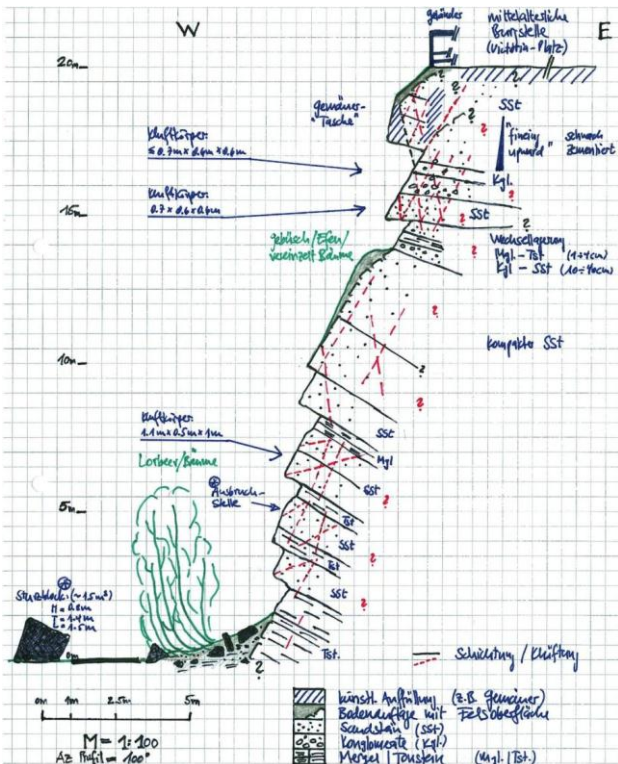 W
E
gebäude
mittelalterliche
Burgstelle
(Viktoria-Platz)
20m
gemäuer-
"Tasche"
SSt
"fining
upward"
schwach
zementiert
Kluftkörper:
≤ 0.7m x 0.6m x 0.6m
Kgl.
15m
Kluftkörper:
0.7 x 0.6 x 0.6m
SSt
gebüsch/Efeu/
vereinzelt Bäume
Wechsellagerung
Mgl.-Tst (1÷4cm)
Kgl - SSt (10÷40cm)
kompakter SSt
10m
Kluftkörper:
1.1m x 0.5m x 1m
SSt
Mgl
Lorbeer/Bäume
SSt
Ausbruch-
stelle
5m
Tst
SSt
Tst
SSt
Sturzblock: (~1.5m³)
H = 0.8m
L = 1.4m
= 1.5m
0m
Tst.
Schichtung / Klüftung
0m 1m 2.5m 5m
M = 1:100
Az Profil = 100°
künstl. Auffüllung (z.B. gemäuer)
Bodenauflage mit Felsoberfläche
Sandstein (SSt)
Konglomerate (Kgl.)
Mergel / Tonstein (Mgl./Tst.)